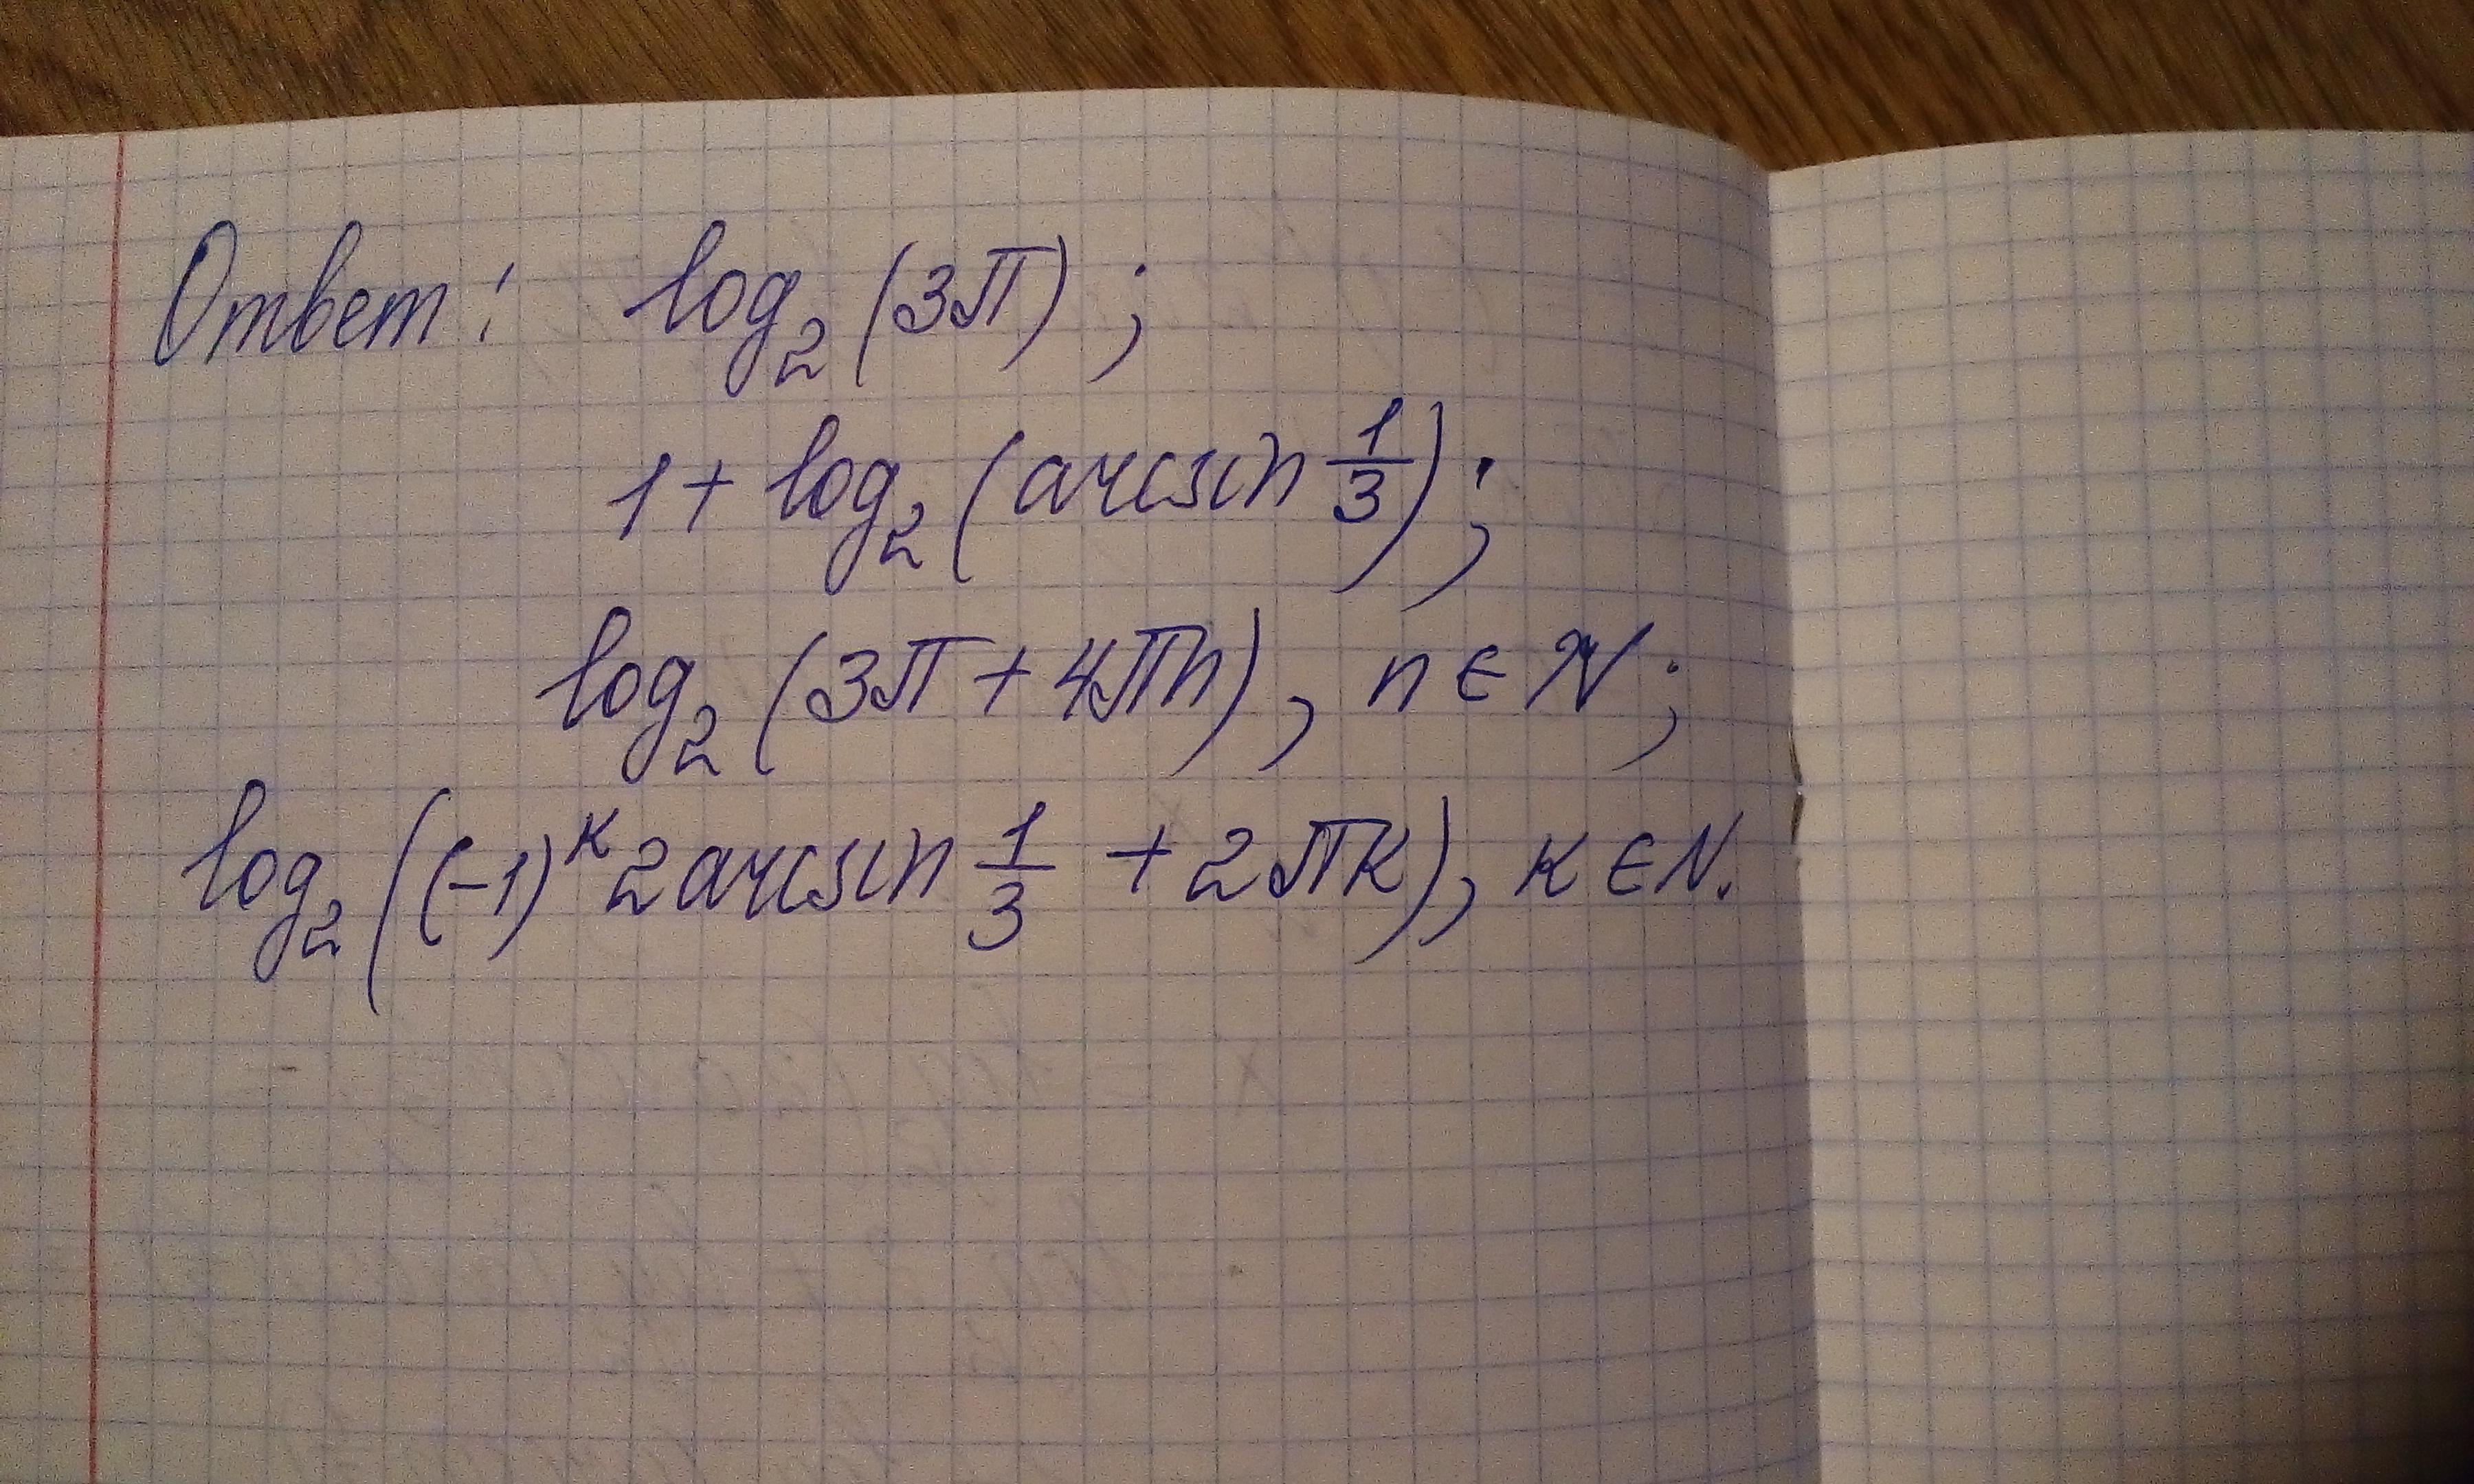 Ответ: log₂(3π);
1 + log₂(arcsin 1/3);
log₂(3π + 4πn), n ∈ N;
log₂((-1)ᵏ 2arcsin 1/3 + 2πk), k ∈ N.